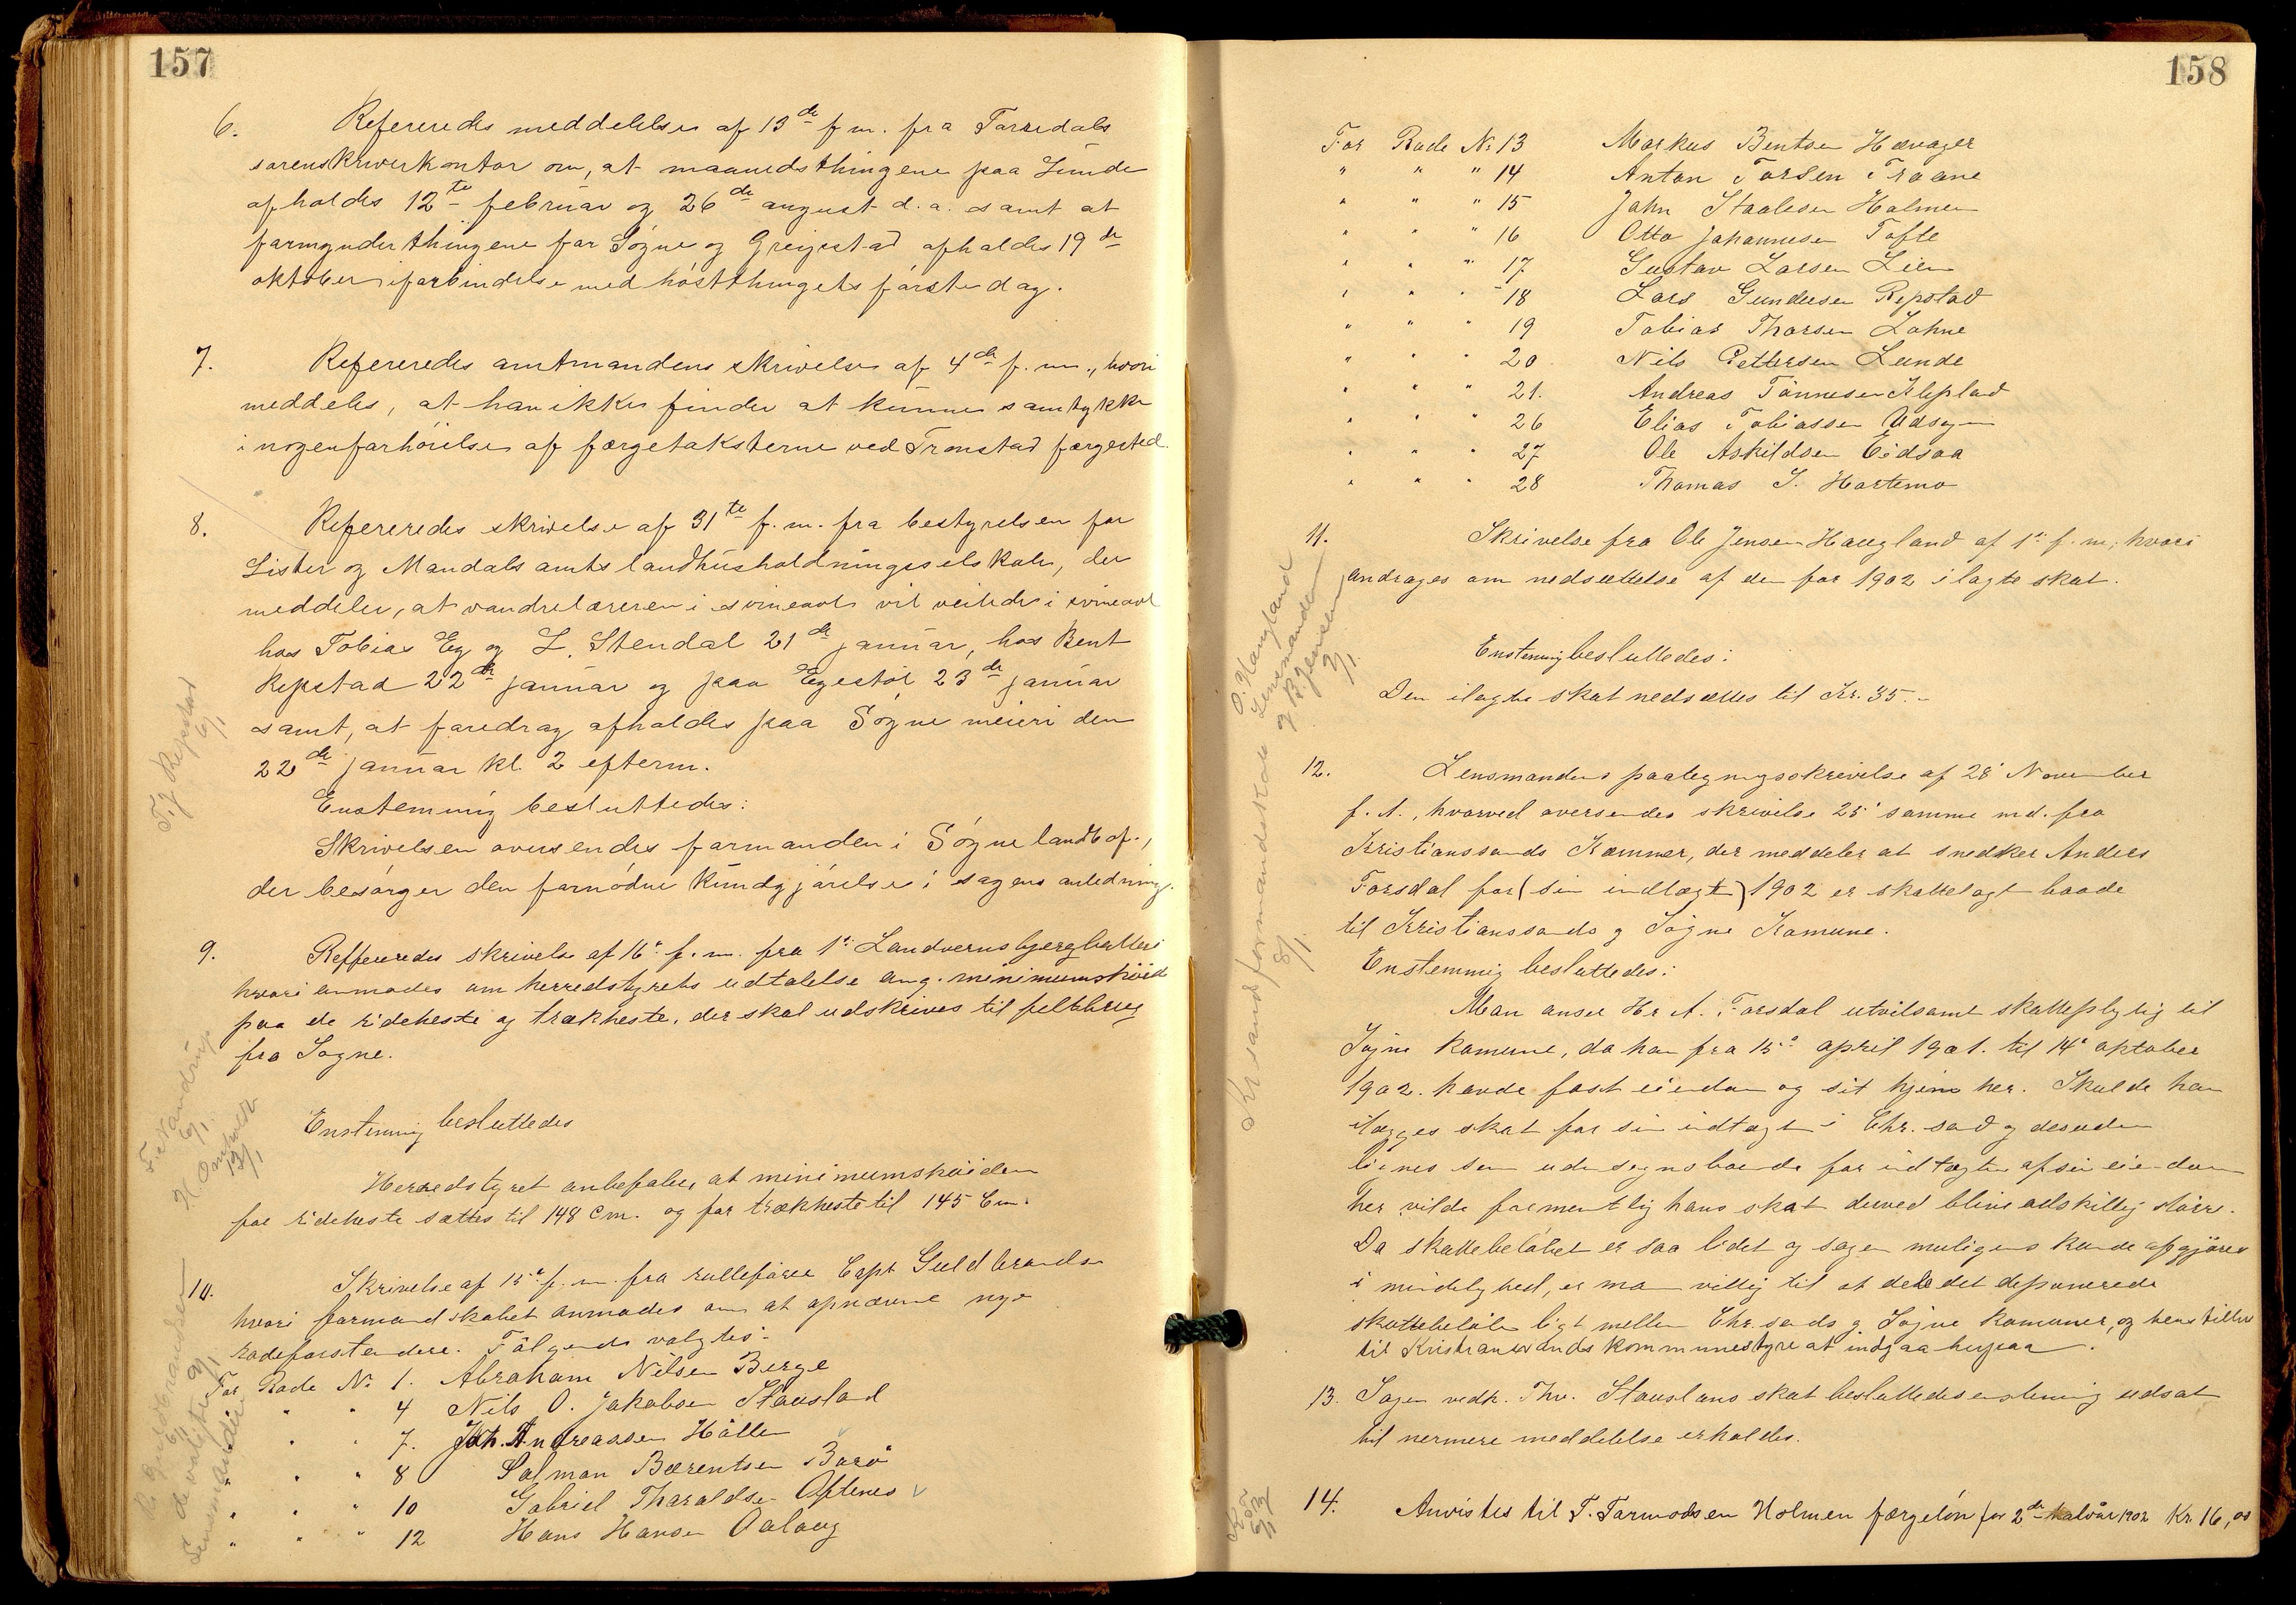 157
6. Refereredes meddelelse af 13de f. m. fra Torridals
sorenskriverkontor om, at maanedsthingene paa Lunde
afholdes 12te februar og 26de august d. a. samt at
formynderthingene for Søgne og Greipstad afholdes 19de
oktober i forbindelse med høstthingets første dag.
7. Refereredes amtmandens skrivelse af 4de f. m., hvori
meddeles, at han ikke finder at kunne samtykke
i nogen forhøielse af færgetaksterne ved Tronstad færgested.
8. Refereredes skrivelse af 31te f. m. fra bestyrelsen for
Lister og Mandals amts landhusholdningsselskab, der
meddeler, at vandrelæreren i svineavl vil veilede i svineavl
hos Tobias Eg og L. Stendal 21de januar, hos Bent
Repstad 22de januar og paa Egestøl 23de januar
samt, at foredrag afholdes paa Søgne meieri den
22de januar kl. 2 efterm.
Enstemmig besluttedes:
Skrivelsen oversendes formanden i Søgne landbof.,
der besørger den fornødne kundgjørelse i sagens anledning.
T. J. Repstad
6/1
9. Reffereredes skrivelse af 16de f. m. fra 1ste Landverns bjergbatteri
hvori anmodes om herredstyrets udtalelse ang. minimumshöide
paa de rideheste og trækheste, der skal udskrives til feltbrug
fra Sogne.
Enstemmig besluttedes
Herredstyret anbefaler, at minimumshöiden
for rideheste sættes til 148 cm. og for trækheste til 145 Cm.
6/1
13/1
10. Skrivelse af 15de f. m. fra rullefører Capt Guldbrandsen
hvori formandskabet anmodes om at opnævne nye
rodeforstandere. Fölgende valgtes:
For Rode No 1. Abraham Nilsen Berge
" " " 4 Nils O. Jakobsen Stauslad
" " " 7. Joh. Andreassen Hållen
" " " 8 Salman Bærentsen Borø
" " " 10 Gabriel Tharaldsen Aftenes
" " " 12 Hans Hansen Aalaug
Guldbrandsen
de valgte 9/1
Lensmanden
158
For Rode No 13 Markus Bentsen Hævager
" " " 14 Anton Torsen Traane
" " " 15 John Staalesen Holmen
" " " 16 Otto Johannesen Tofte
" " " 17 Gustav Larsen Lien
" " " 18 Lars Gundersen Repstad
" " " 19 Tobias Thorsen Lohne
" " " 20 Nils Pettersen Lunde
" " " 21. Andreas Tönnesen Klepland
" " " 26 Elias Tobiassen Udsogn
" " " 27 Ole Askildsen Eidsaa
" " " 28 Thomas S. Hortemo
11. Skrivelse fra Ole Jensen Haugland af 1ste f. m., hvori
andrages om nedsættelse af den for 1902 ilagte skat.
Enstemmig besluttedes:
Den ilagte skat nedsættes til Kr. 35.-
O. Haugland
Lensmanden
og R. Jensen
9/1.
12. Lensmandens paategningsskrivelse af 28' November
f. A., hvorved oversendes skrivelse 25' samme md. fra
Kristianssands Kæmner, der meddeler at snedker Anders
Forsdal for (sin indtægt) 1902 er skattelagt baade
til Kristianssands og Sogne Komune.
Enstemmig besluttedes:
Man anser Hr A. Forsdal utvilsomt skattepligtig til
Sogne komune, da han fra 15de april 1901. til 14de oktober
1902. havde fast eiendom og sit hjem her. Skulde han
ilægges skat for sin indtægt i Chr. sand og desuden
lignes som udensognsboende for indtægten af sin eiendom
her vilde formentlig hans skat derved blive adskillig större.
Da skattebelöbet er saa lidet og sagen muligens kunde afgjöres
i mindelighed, er man villig til at dele det deponerede
skattebelöb ligt mellem Chr. sands og Sogne komuner, og henstilles
til Kristiansands kommunestyre at indgaa herpaa.
Kr. sand formandskab
8/1.
13. Sagen vedk. Thv. Stauslans skat besluttedes enstemmig udsat
til nermere meddelelse erholdes.
14. Anvistes til T. Tarmodsen Holmen færgeløn for 2det halvår 1902 Kr. 16,00